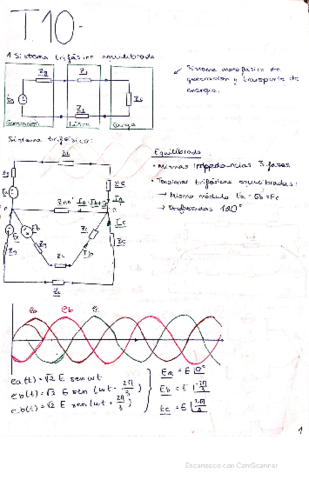 T.10-
1. Sistema trifásico equilibrado
Zg
Zl
Zc
Generación
Línea
Carga
✓ Sistema monofásico de
generación y transporte de
energía.
Sistema trifásico:
Equilibrado
• Mismas impedancias 3 fases
• Tensiones trifásicas equilibradas:
→ Mismo módulo Ea = Eb = Ec
→ Desfasadas 120°
ea(t) = √2 E sen ωt
eb(t) = √2 E sen (ωt - 2π/3)
ec(t) = √2 E sen (ωt + 2π/3)
Ea = E|0°
Eb = E|-2π/3
Ec = E|2π/3
1
Escaneado con CamScanner